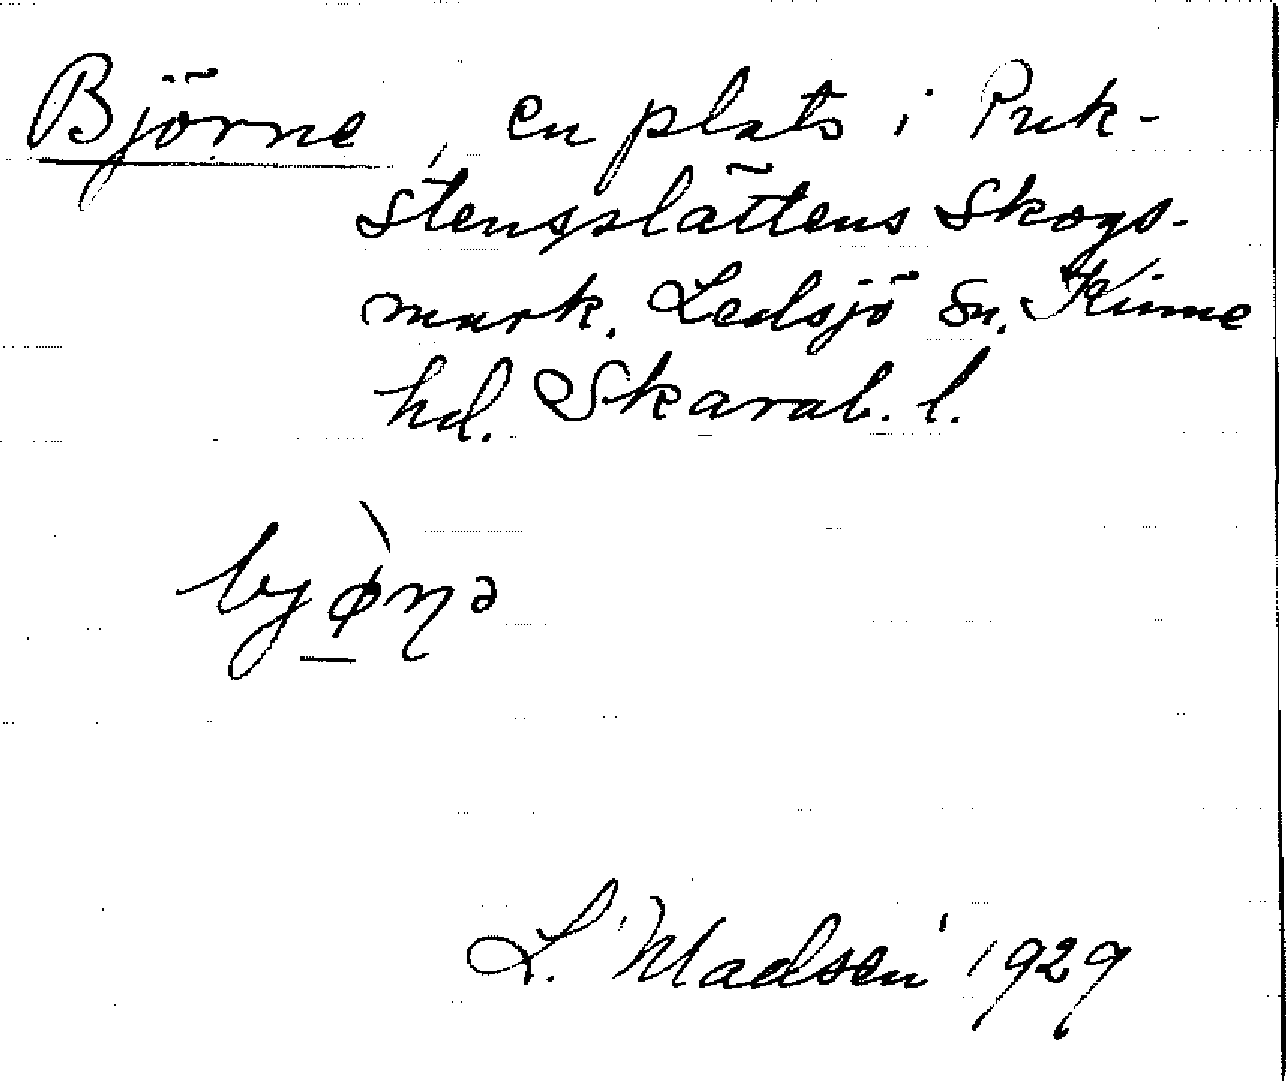 Björne, en plats i Puk-
stensslättens Skogs-
mark. Ledsjö sn. Kinne
hd. Skarab. l.
bjø̀ɳə
L. Madsen 1929